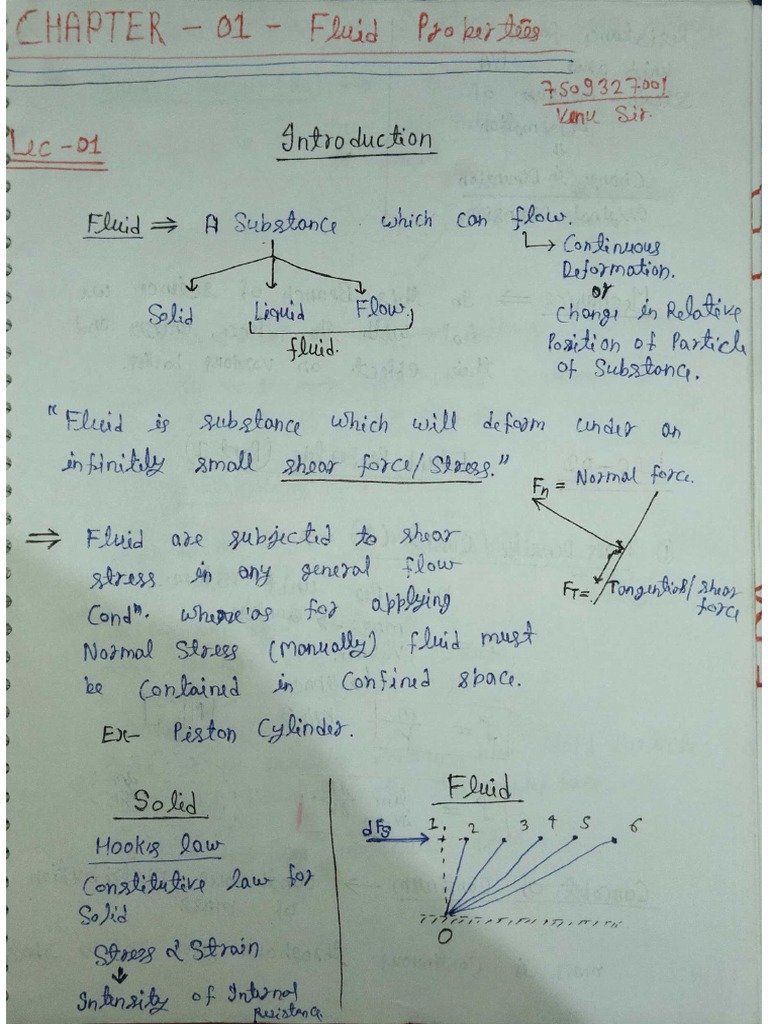 CHAPTER - 01 - Fluid Properties
7509327001
Venu Sir.
Lec -01
Introduction
Fluid ⇒ A Substance which can flow.
↳ Continuous
Deformation.
or
Change in Relative
Position of Particle
of Substance.
Solid Liquid Flow
fluid.
"Fluid is substance which will deform under an
infinitely small shear force/Stress."
Fn = Normal force.
FT = Tangential/shear
force
⇒ Fluid are subjected to shear
stress in any general flow
Condⁿ. where'as for applying
Normal Stress (Manually) fluid must
be contained in confined space.
Ex- Piston Cylinder.
Solid
Hook's law
Constitutive law for
Solid
Stress α Strain
↓
Intensity of Internal
Resistance.
Fluid
dFs 1 2 3 4 5 6
O